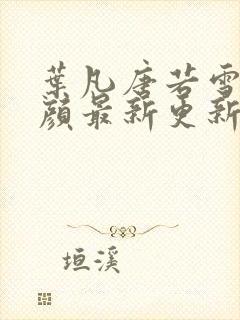 葉凡唐若雪
顔最新更新
垣溪